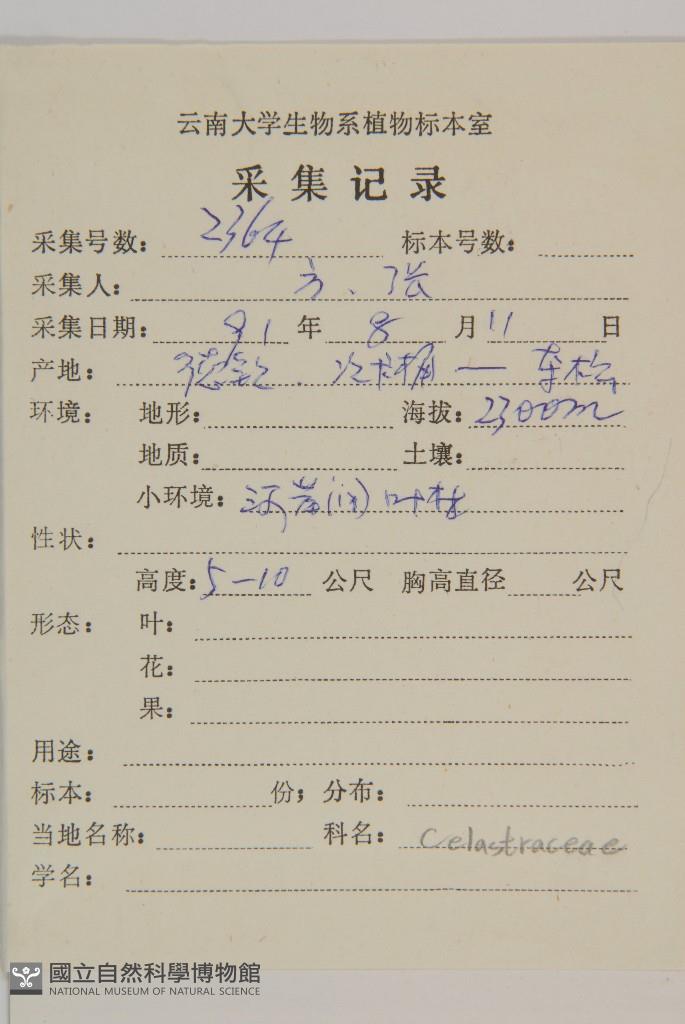 云南大学生物系植物标本室
采集记录
采集号数: 2364 标本号数:
采集人: 方、张
采集日期: 91 年 8 月 11 日
产地: 德钦、 —
环境: 地形: 海拔: 2300m
地质: 土壤:
小环境: 河岸(阔)叶林
性状:
高度: 5-10 公尺 胸高直径 公尺
形态: 叶:
花:
果:
用途:
标本: 份; 分布:
当地名称: 科名: Celastraceae
学名:
國立自然科學博物館
NATIONAL MUSEUM OF NATURAL SCIENCE